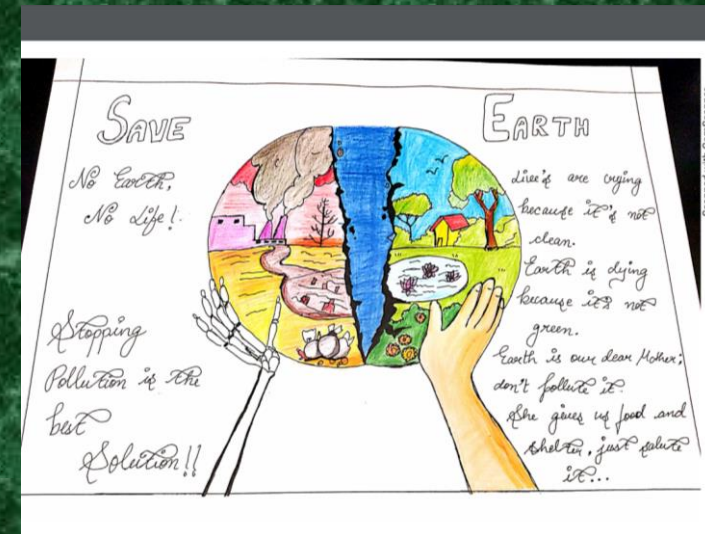 SAVE EARTH
No Earth,
No Life!.
Stopping
Pollution is the
best
Solution!!
Live's are crying
because it's not
clean.
Earth is dying
because it's not
green.
Earth is our dear Mother;
don't pollute it.
She gives us food and
shelter, just salute
it...